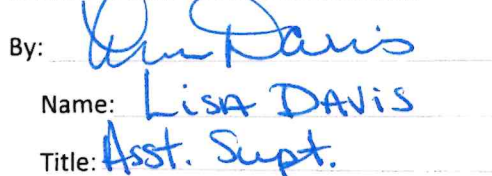 By: Lisa Davis
Name: LISA DAVIS
Title: Asst. Supt.